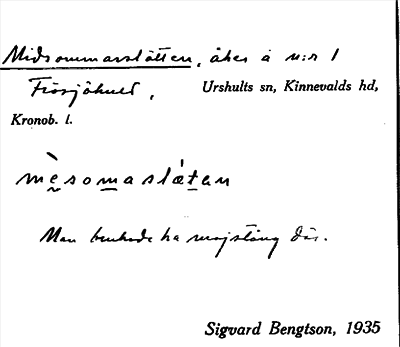 Midsommarslätten, åker å n:r 1
Frösjöhult, Urshults sn, Kinnevalds hd,
Kronob. l.
mèsomaslǽtan
Man brukade ha majstång där.
Sigvard Bengtson, 1935